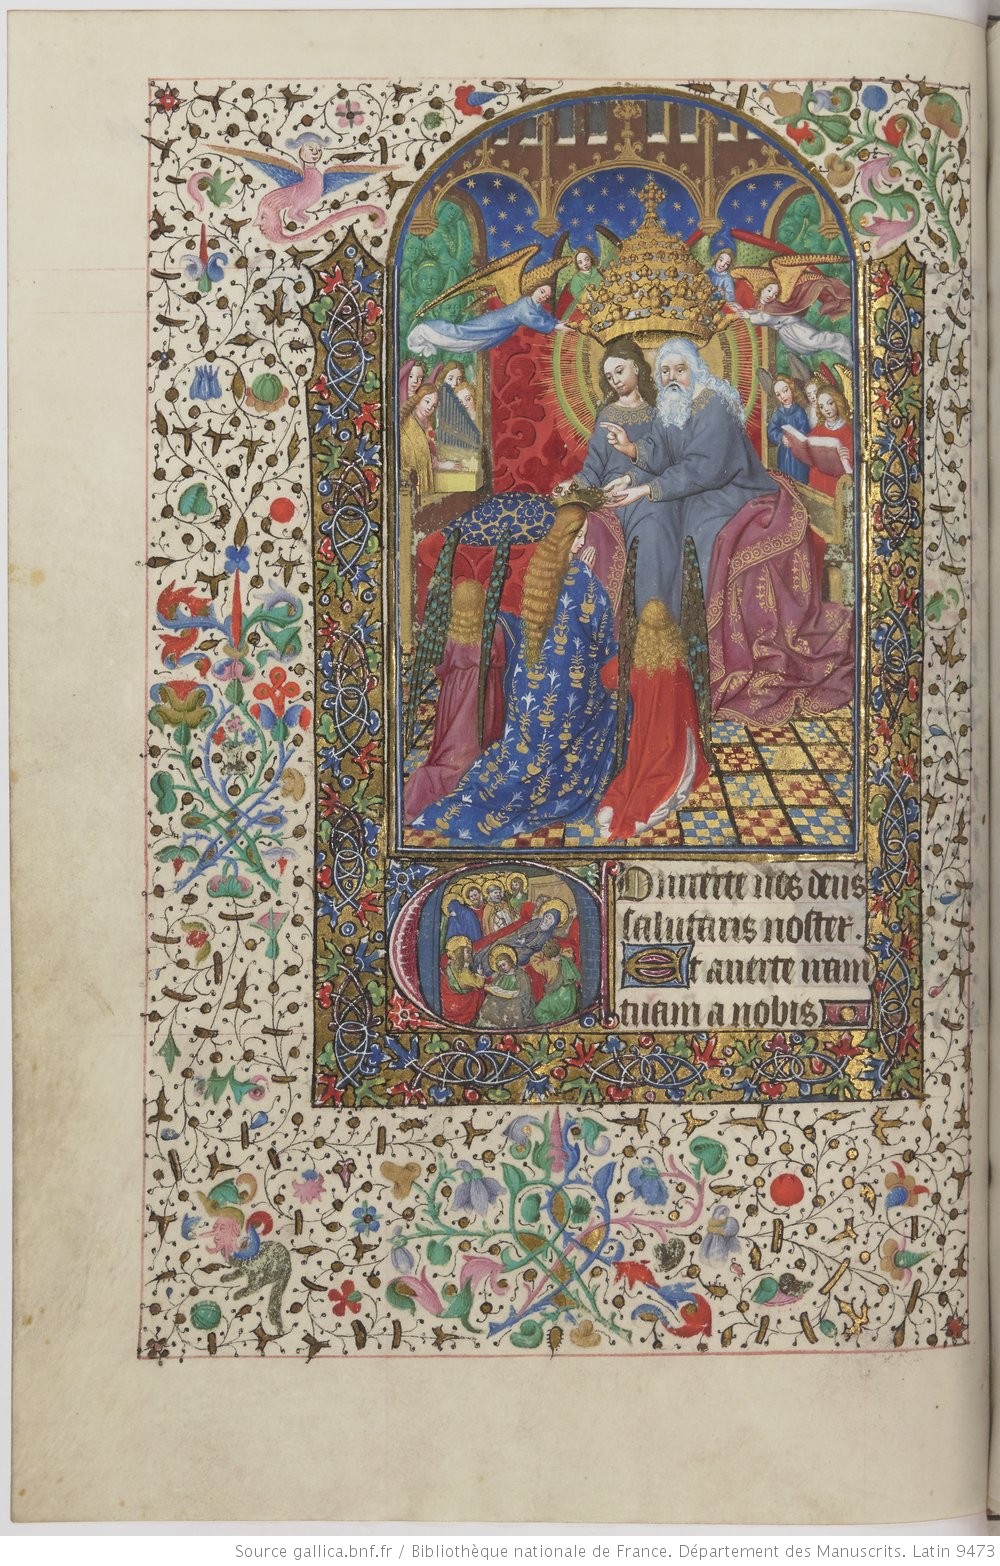 Onuerte nos deus
salutaris noster.
Et auerte iram
tuam a nobis
Source gallica.bnf.fr / Bibliothèque nationale de France. Département des Manuscrits. Latin 9473